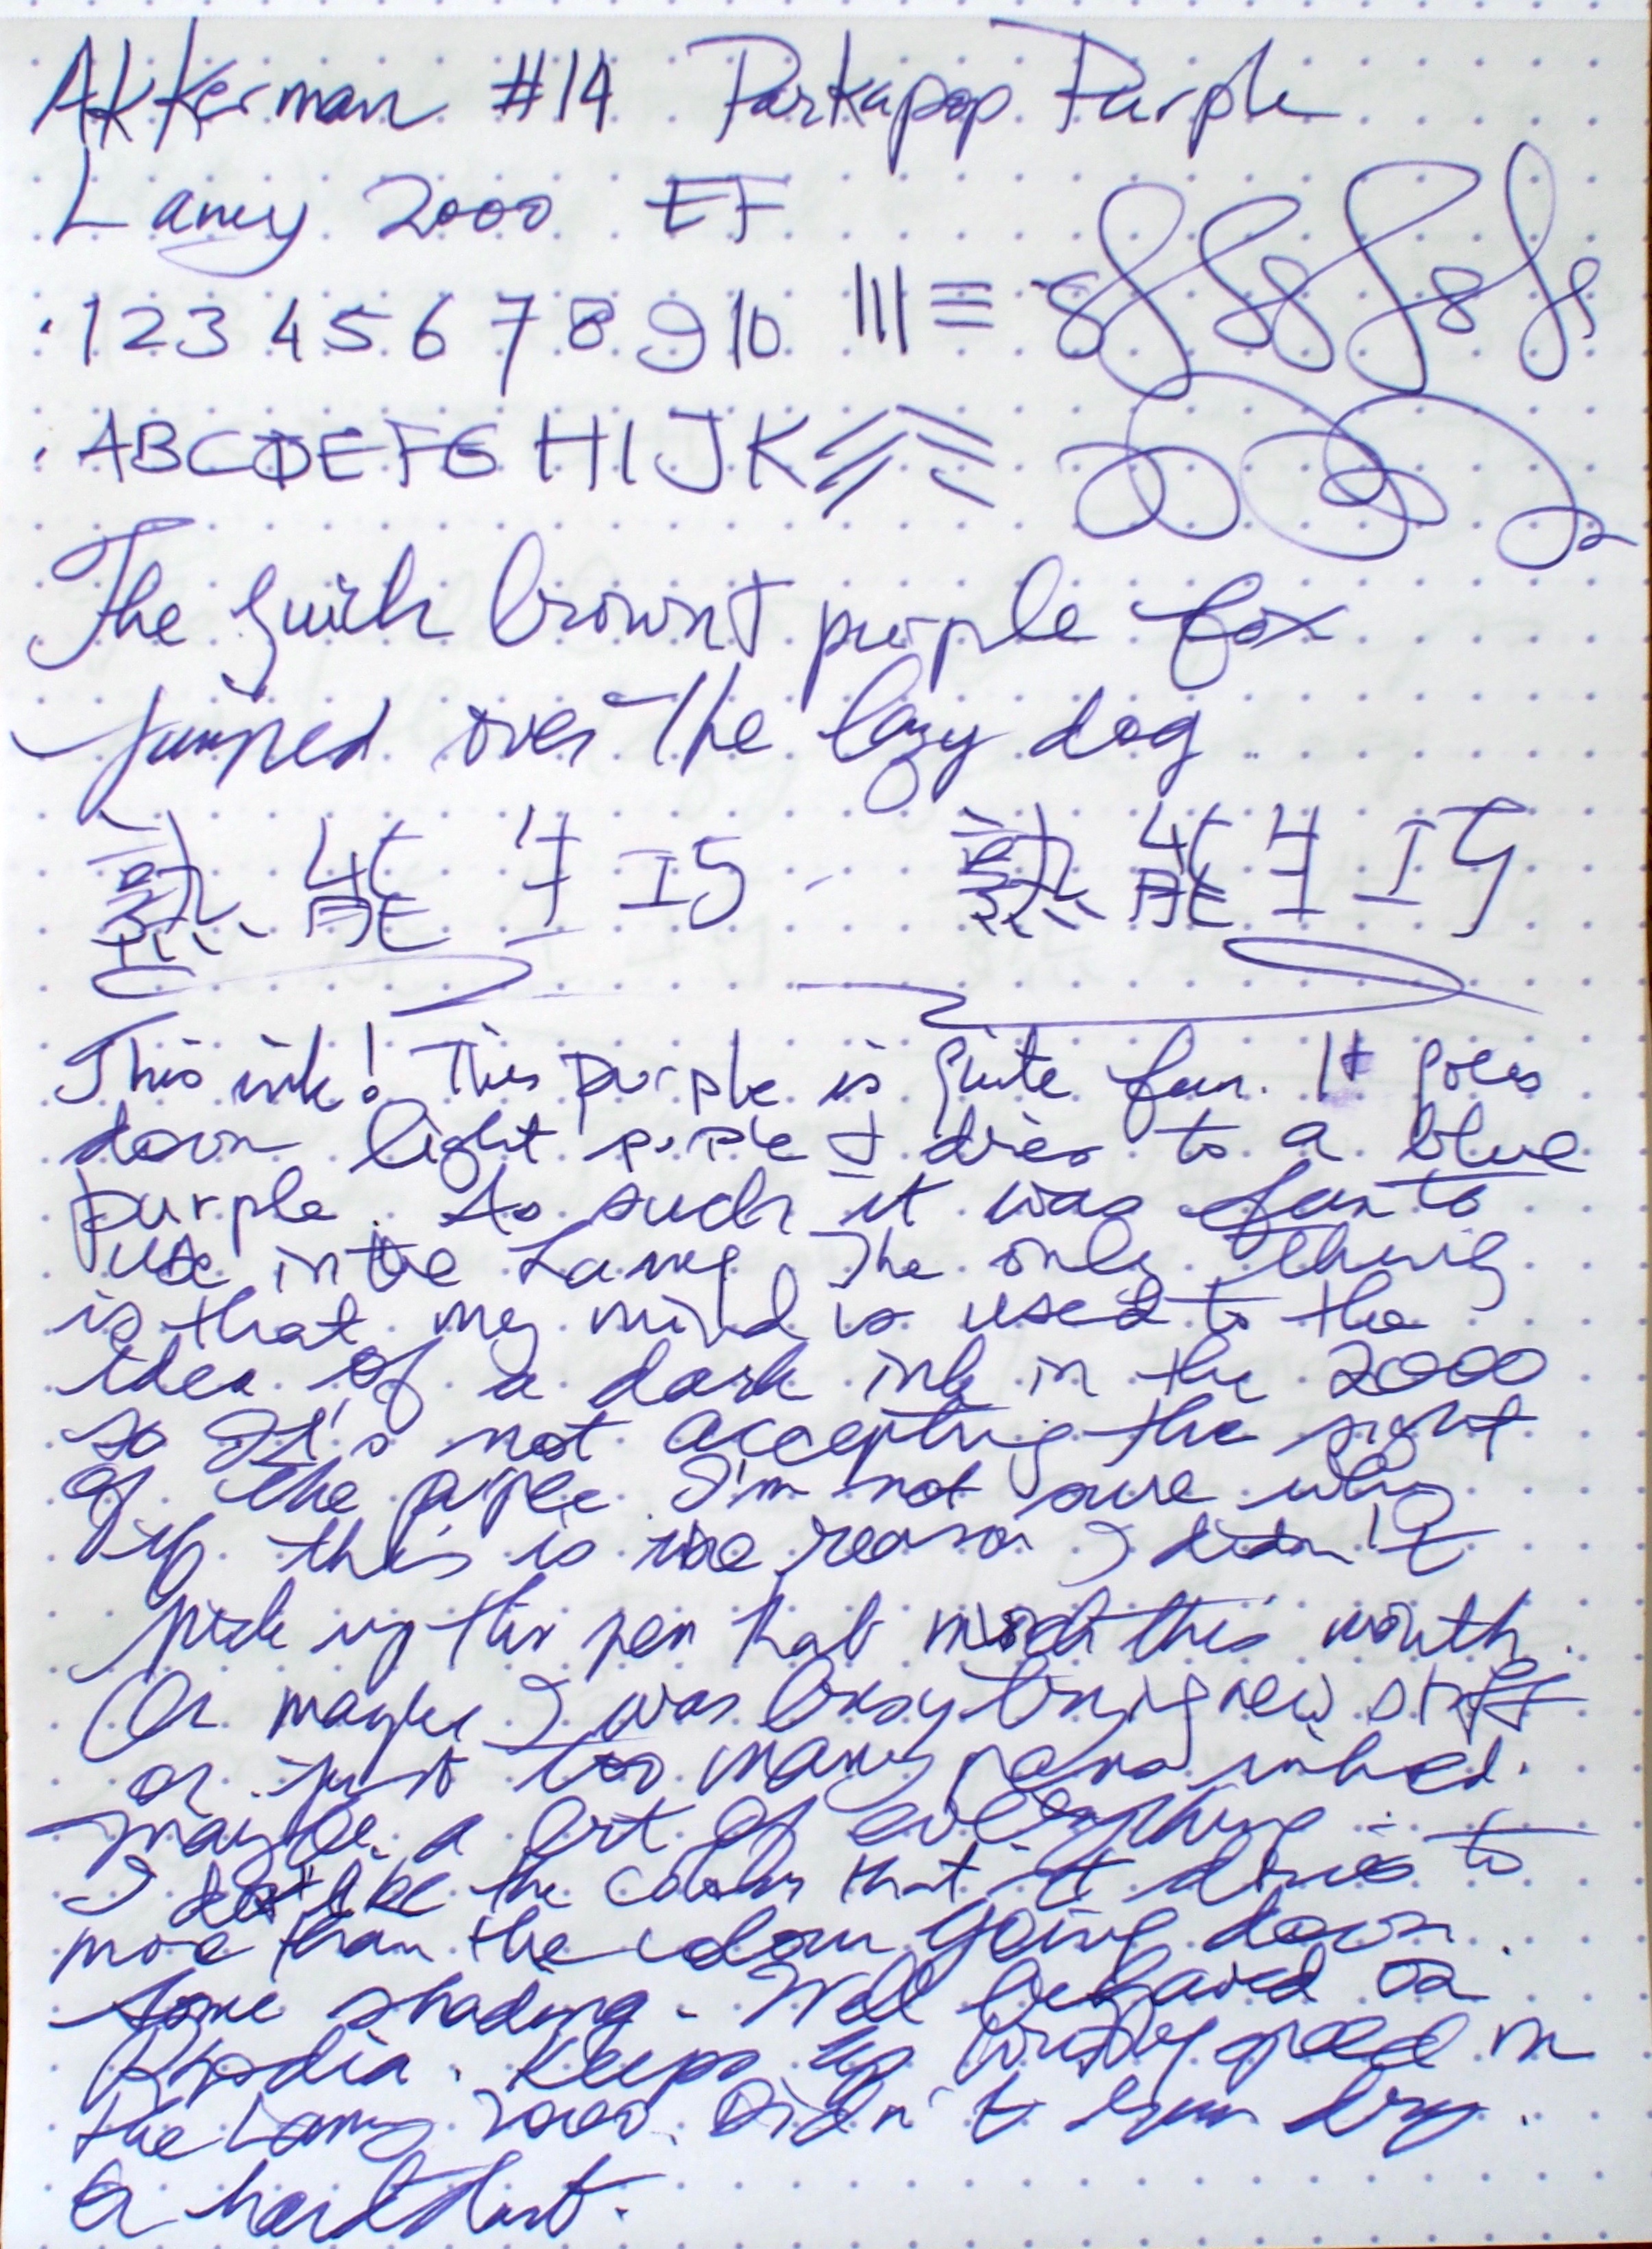 Akkerman #14 Parkapop Purple
Lamy 2000 EF
1 2 3 4 5 6 7 8 9 10
ABCDEFG HIJK
The quick brown + purple fox
jumped over the lazy dog
This ink! This purple is quite fun. It goes
down light purple + dries to a blue
purple. As such it was fun to
use in the Lamy. The only thing
is that my mind is used to the
idea of a dark ink in the 2000
so it's not accepting the sight
of the purple. I'm not sure why
if this is the reason I didn't
pick up this pen that much this month.
Or maybe I was busy trying new stuff
or just too many pens inked.
maybe a bit of everything.
I like the colour that it dries to
more than the colour going down.
Some shading. Well behaved on
Rhodia. Keeps up writing speed in
the Lamy 2000. Didn't run dry.
or hard start.